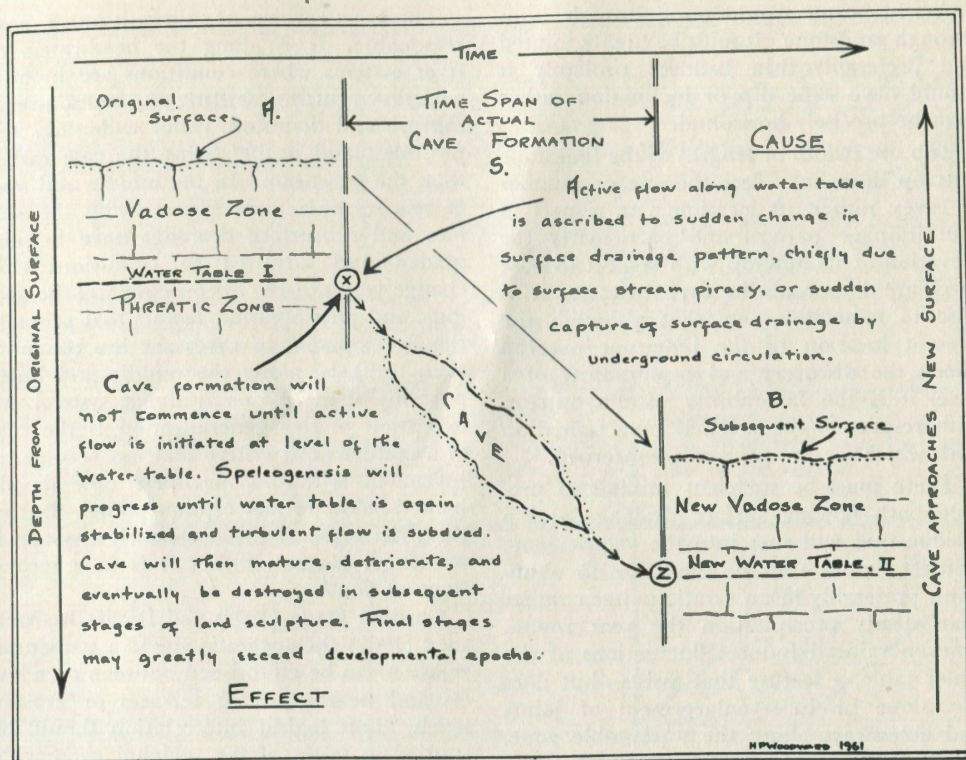 TIME
Original
Surface A.
TIME SPAN OF
ACTUAL
CAVE FORMATION
S.
CAUSE
Active flow along water table
is ascribed to sudden change in
surface drainage pattern, chiefly due
to surface stream piracy, or sudden
capture of surface drainage by
underground circulation.
Vadose Zone
WATER TABLE I
PHREATIC ZONE
X
CAVE
Cave formation will
not commence until active
flow is initiated at level of the
water table. Speleogenesis will
progress until water table is again
stabilized and turbulent flow is subdued.
Cave will then mature, deteriorate, and
eventually be destroyed in subsequent
stages of land sculpture. Final stages
may greatly exceed developmental epochs.
EFFECT
B.
Subsequent Surface
New Vadose Zone
Z
NEW WATER TABLE, II
DEPTH FROM ORIGINAL SURFACE
CAVE APPROACHES NEW SURFACE
HPWOODWARD 1961